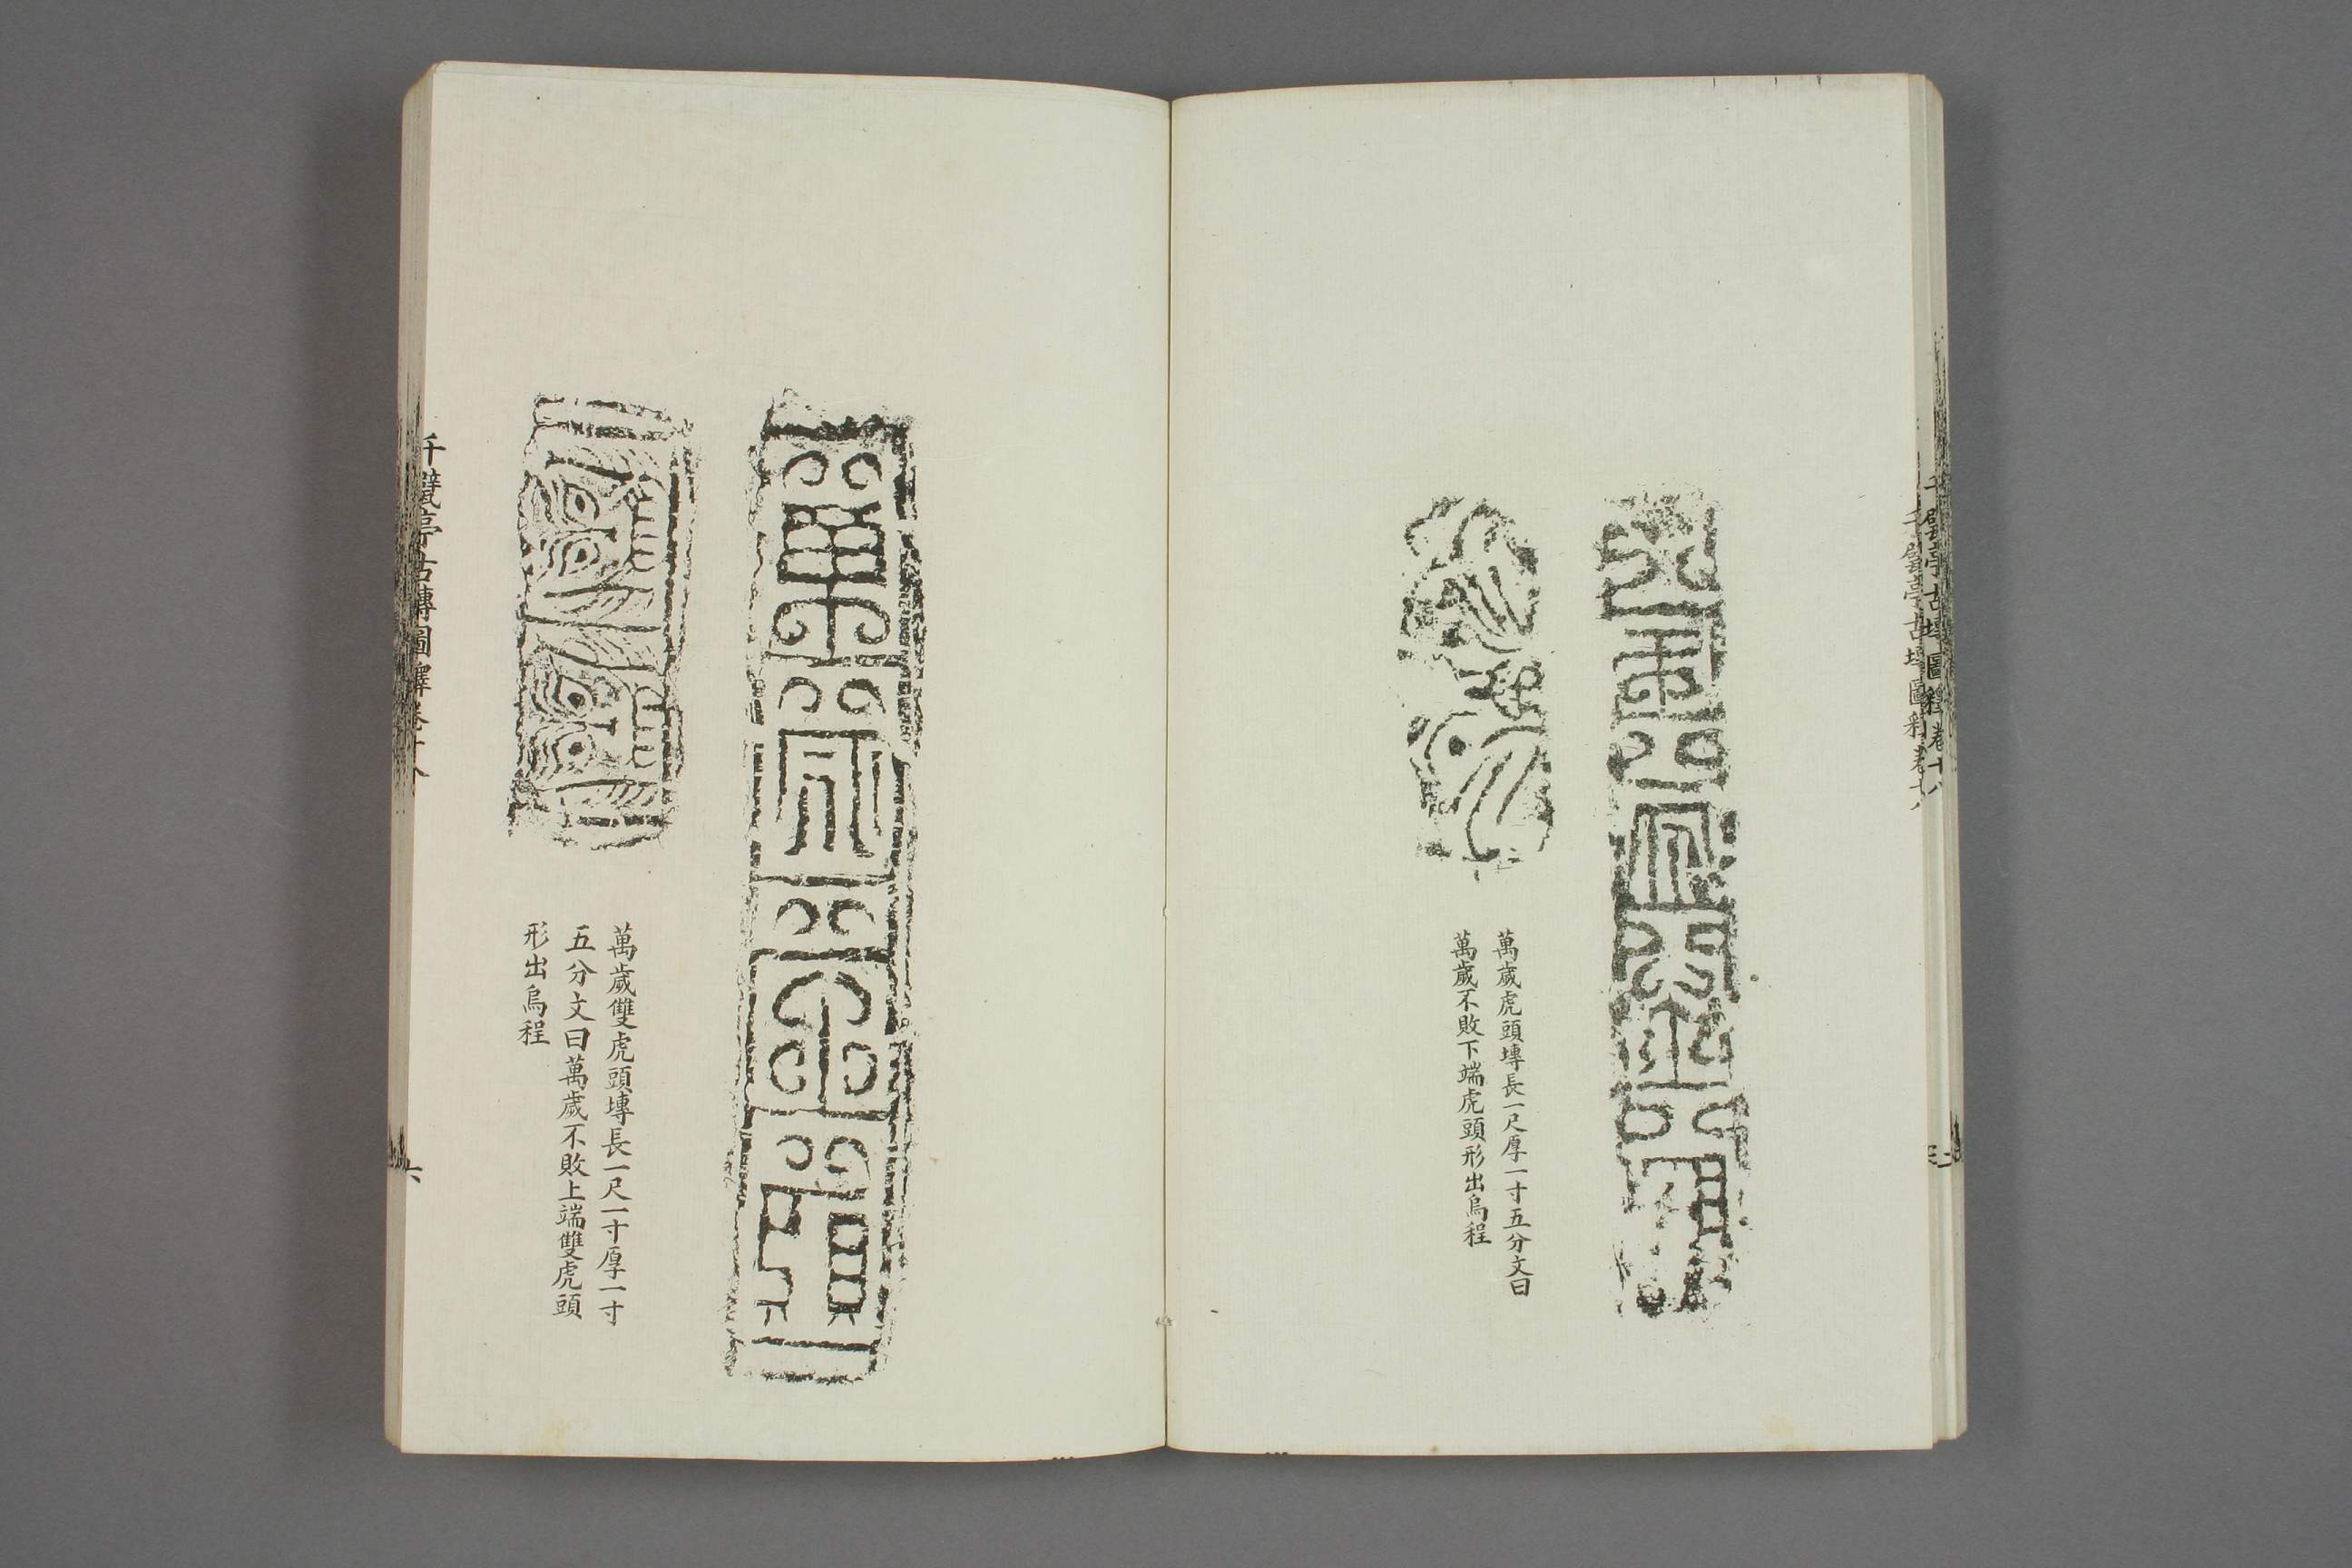 萬歲不敗
萬歲虎頭塼長一尺厚一寸五分文曰
萬歲不敗下端虎頭形出烏程
萬歲不敗
萬歲雙虎頭塼長一尺一寸厚一寸
五分文曰萬歲不敗上端雙虎頭
形出烏程
千甓亭古塼圖釋卷十八
六